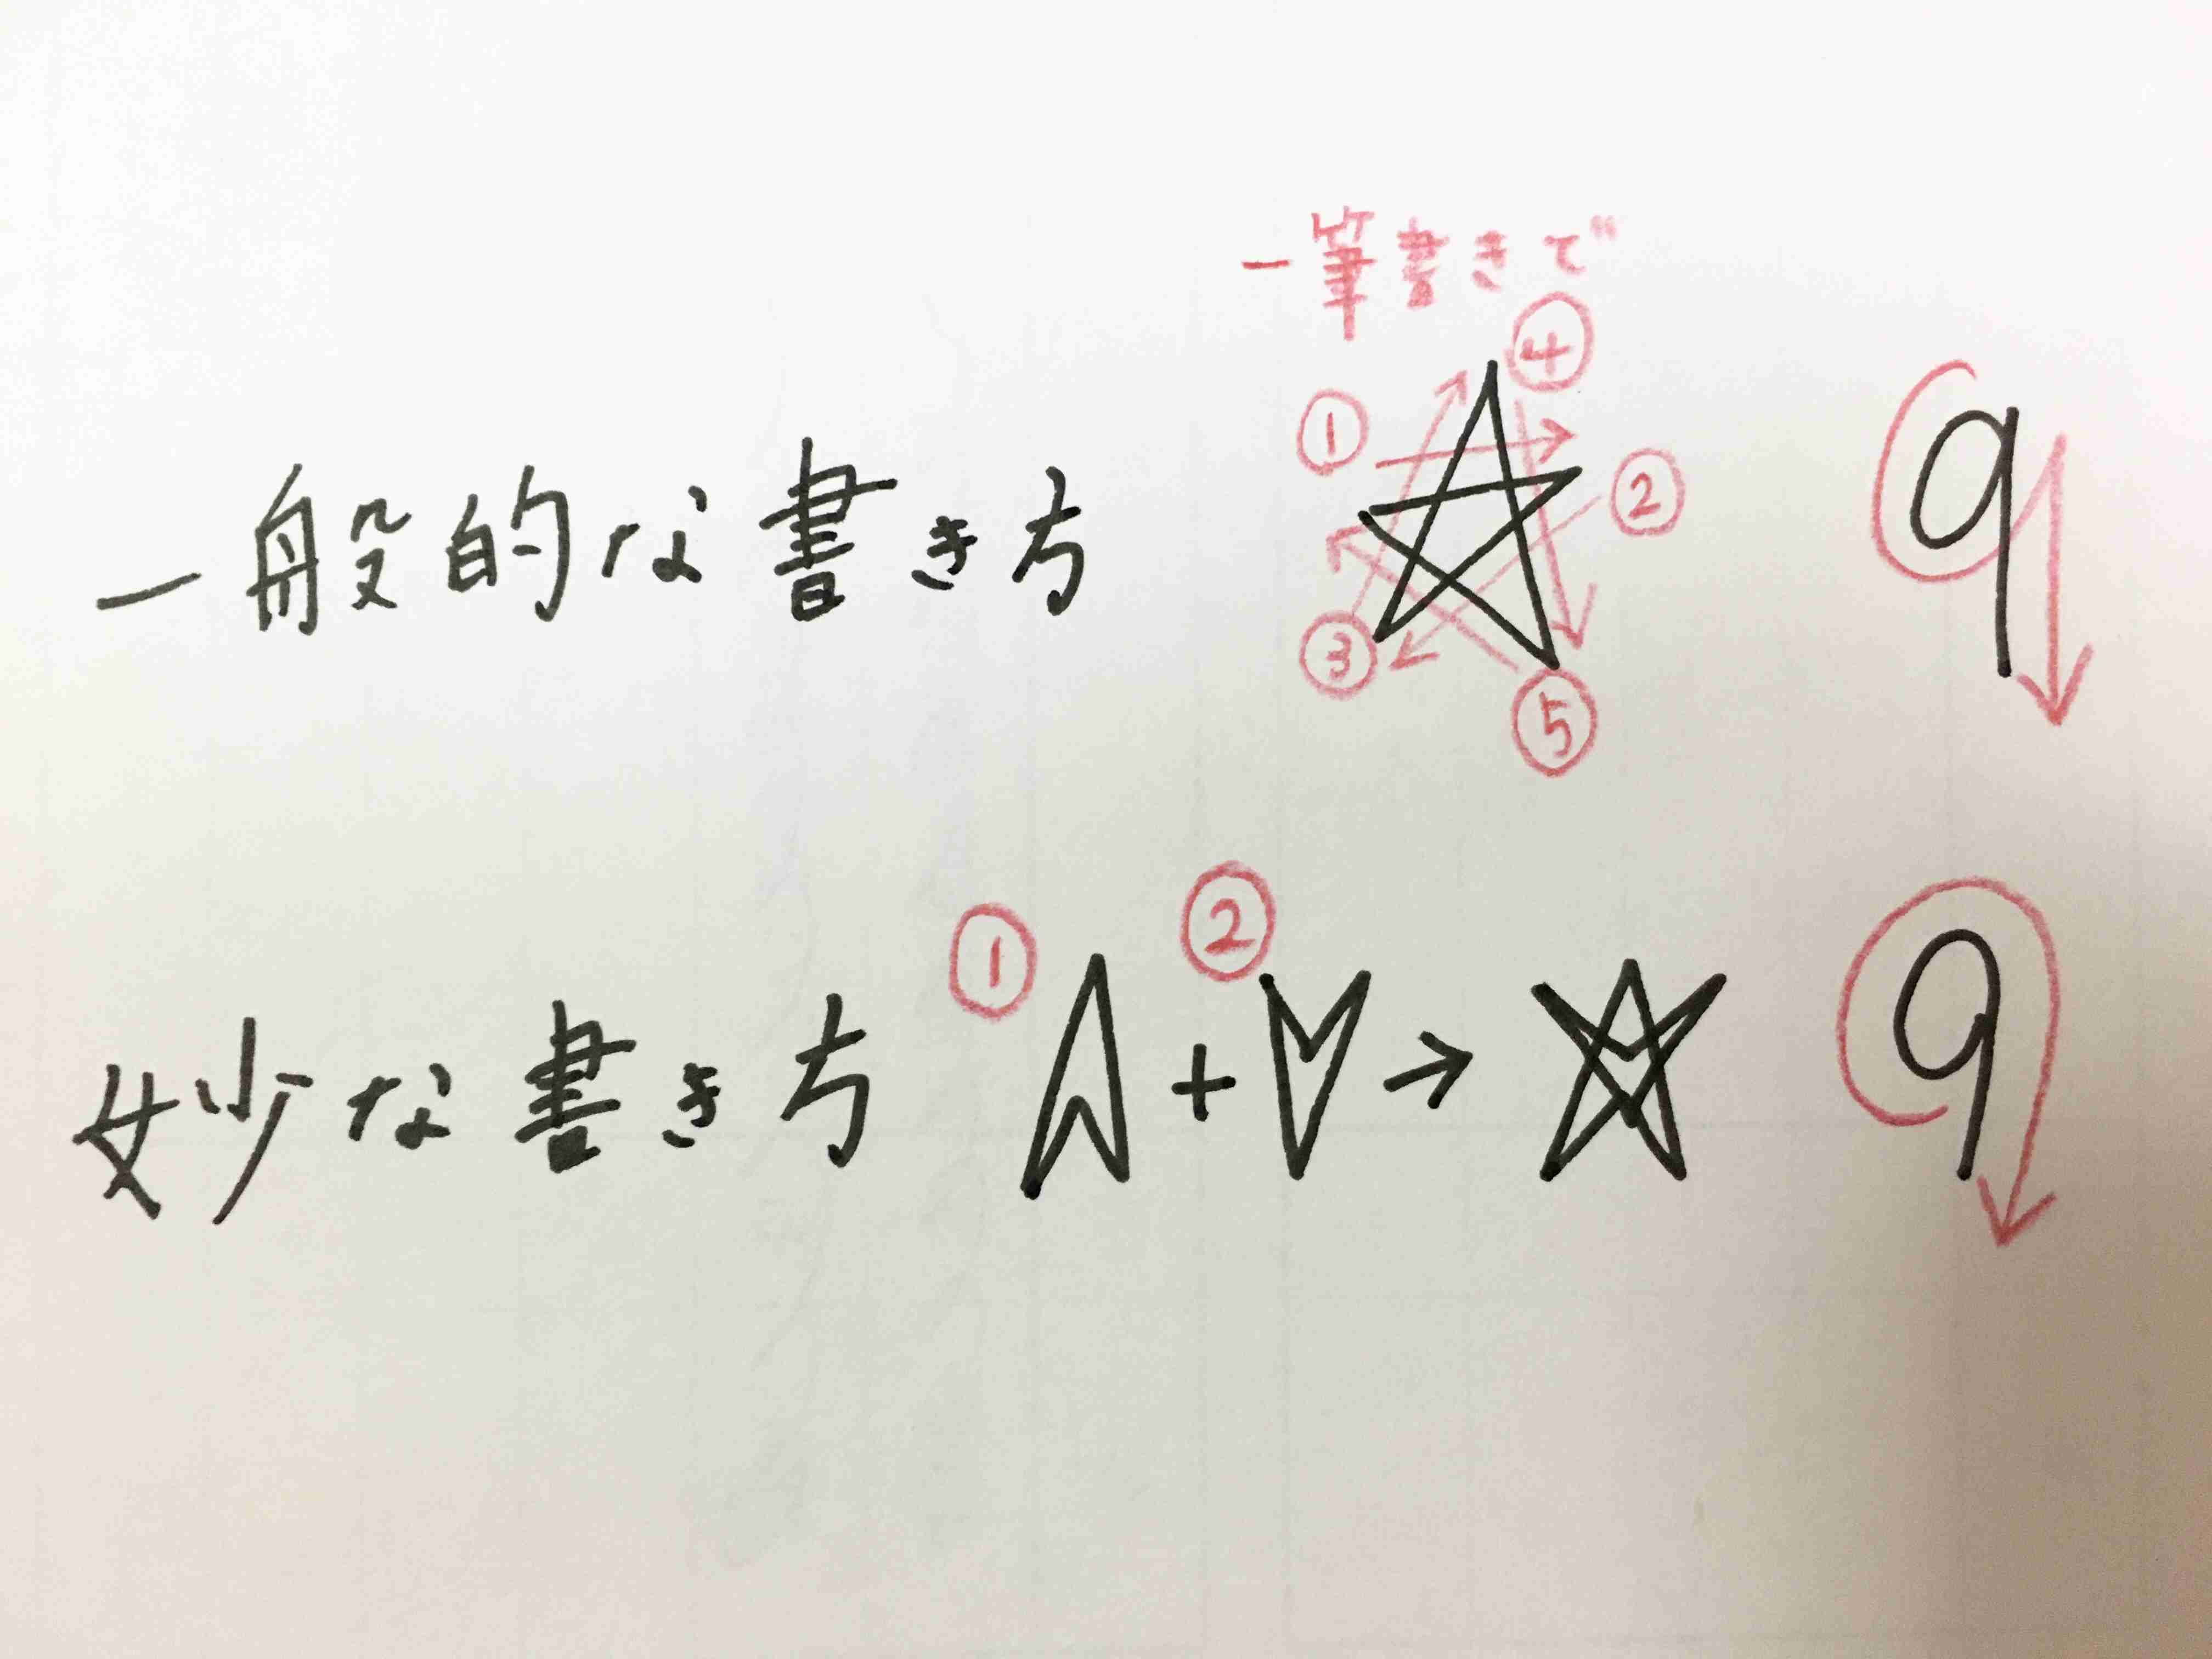 一筆書きで
一般的な書き方 ① ② ③ ④ ⑤ 9
妙な書き方 ① + ② → 9